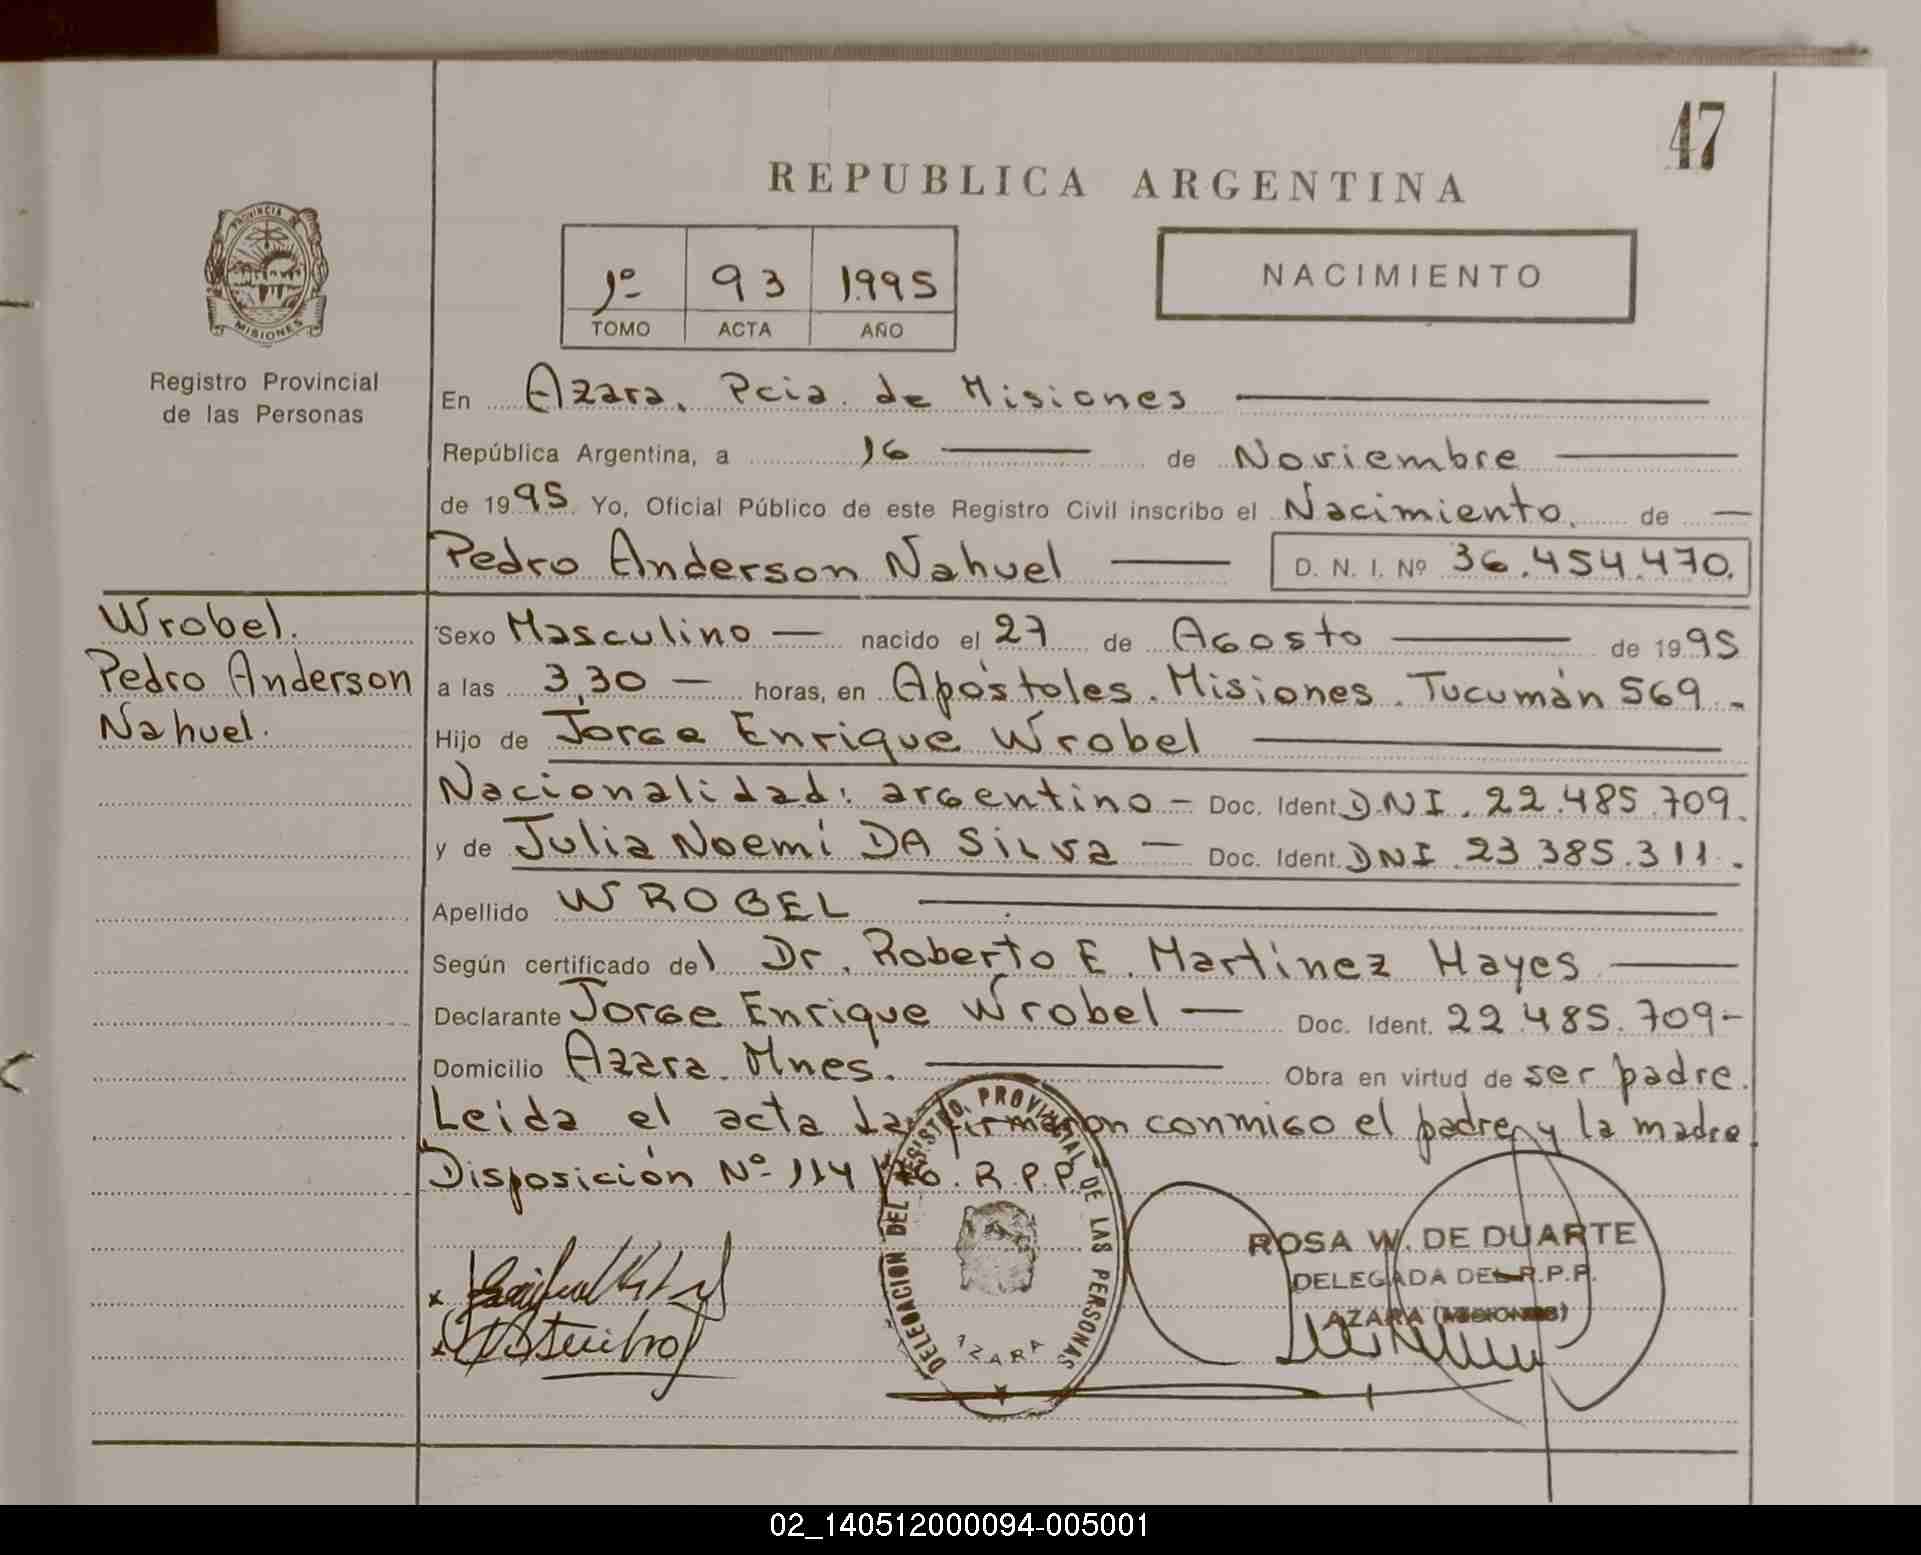 47
REPUBLICA ARGENTINA
PROVINCIA DE
MISIONES
Registro Provincial
de las Personas
1º 93 1995
TOMO ACTA AÑO
NACIMIENTO
En Azara. Pcia. de Misiones
República Argentina, a 16 de Noviembre
de 1995. Yo, Oficial Público de este Registro Civil inscribo el Nacimiento. de
Pedro Anderson Nahuel D. N. I. Nº 36.454.470.
Wrobel.
Pedro Anderson
Nahuel.
Sexo Masculino — nacido el 27 de Agosto de 1995
a las 3,30 — horas, en Apóstoles. Misiones. Tucumán 569.-
Hijo de Jorge Enrique Wrobel
Nacionalidad: argentino - Doc. Ident. DNI. 22.485.709.
y de Julia Noemí DA Silva — Doc. Ident. DNI 23 385.311.
Apellido WROBEL
Según certificado del Dr. Roberto E. Martinez Hayes
Declarante Jorge Enrique Wrobel — Doc. Ident. 22.485.709-
Domicilio Azara. Mnes. Obra en virtud de ser padre.
Leida el acta la firmaron conmigo el padre y la madre.
Disposición Nº 114 R.P.P.
DELEGACION DEL REGISTRO PROVINCIAL DE LAS PERSONAS
AZARA
ROSA W. DE DUARTE
DELEGADA DEL R.P.P.
AZARA (MISIONES)
02_140512000094-005001